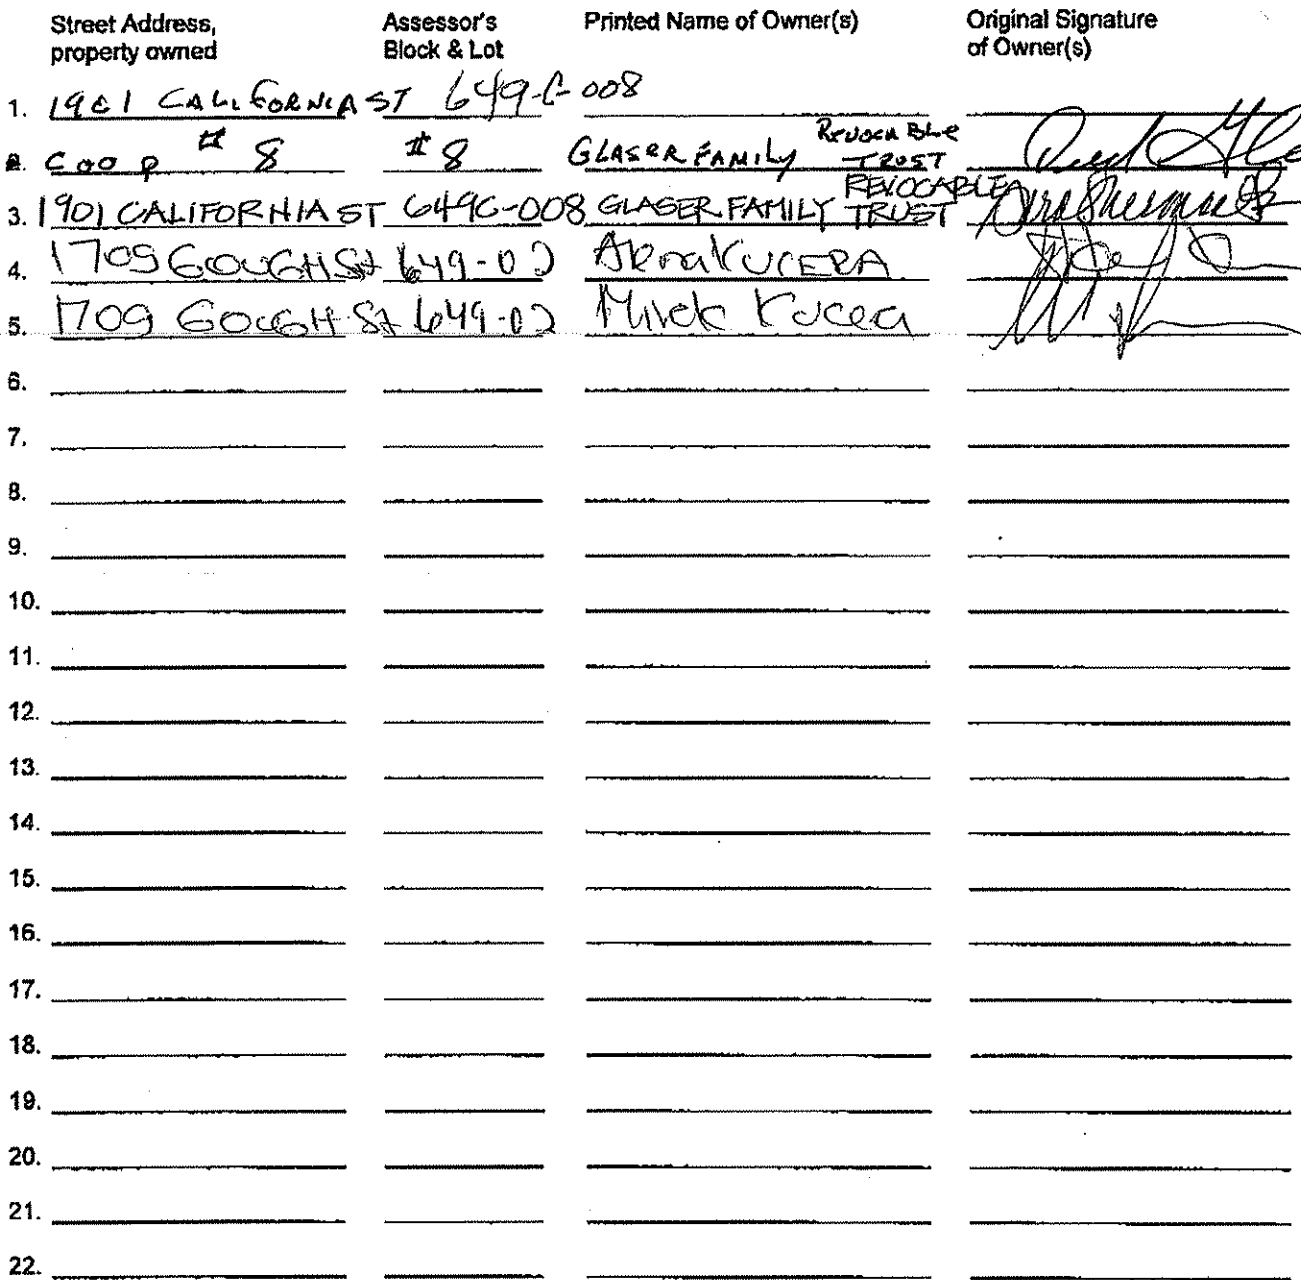 Street Address, property owned Assessor's Block & Lot Printed Name of Owner(s) Original Signature of Owner(s)
1. 1901 CALIFORNIA ST 649-C-008
2. COOP # 8 # 8 GLASER FAMILY REVOCABLE TRUST
3. 1901 CALIFORNIA ST 649C-008 GLASER FAMILY REVOCABLE TRUST
4. 1709 GOUGH St 649-02 KUCERA
5. 1709 GOUGH St 649-02 Mirek Kucera
6.
7.
8.
9.
10.
11.
12.
13.
14.
15.
16.
17.
18.
19.
20.
21.
22.